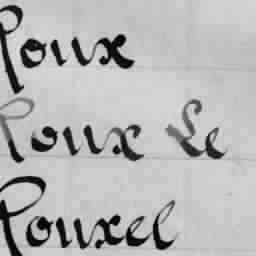 Roux
Roux Le
Rouxel